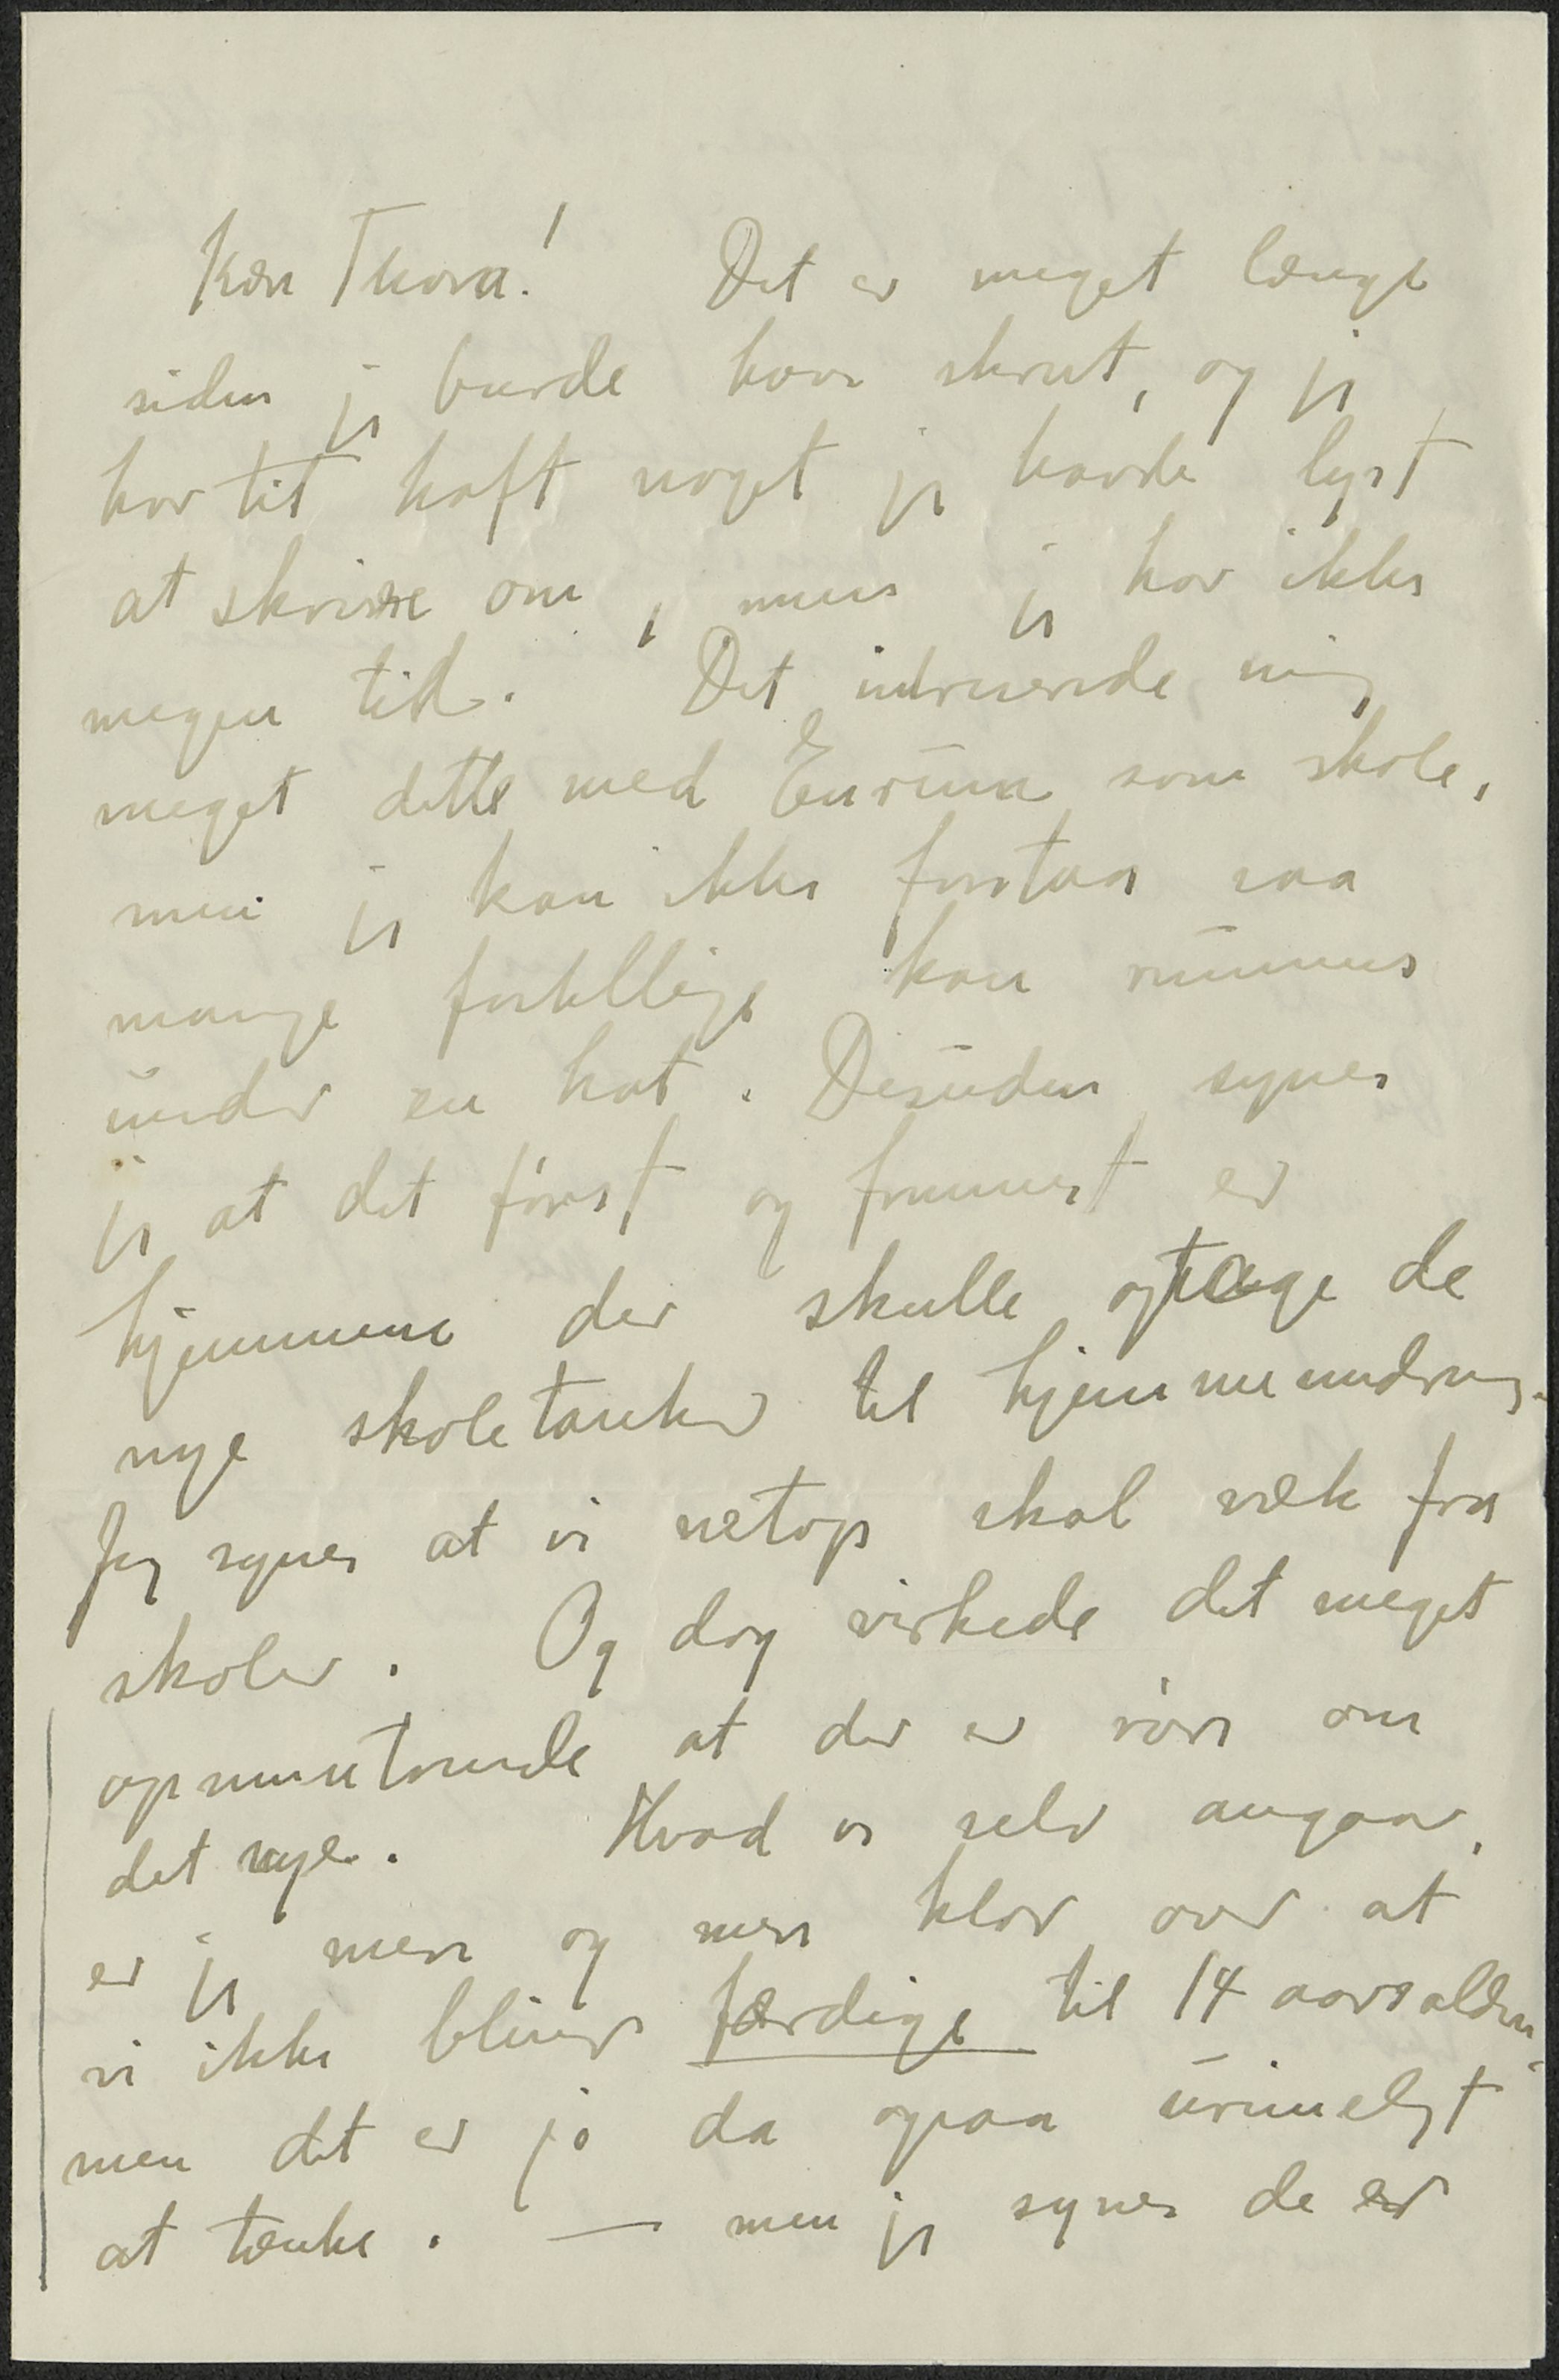 Kære Thora! Det er meget længe
siden jeg burde have skrevet, og jeg
har tit haft noget jeg havde lyst
at skrive om, men jeg har ikke
megen tid. Det interesserede mig
meget dette med Enrum som skole,
men jeg kan ikke forstaa saa
mange forskellige kan rummes
under en hat. Desuden synes
jeg at det først og fremmest er
hjemmene der skulle optage de
nye skoletanker til hjemmeundervisning.
Jeg synes at vi netop skal væk fra
skoler. Og dog virkede det meget
opmuntrende at der er røre om
det nye. Hvad os selv angaar,
er jeg mere og mere klar over at
vi ikke bliver færdige til 14 aarsalderen,
men det er jo da ogsaa urimeligt
at tænke. — men jeg synes de er